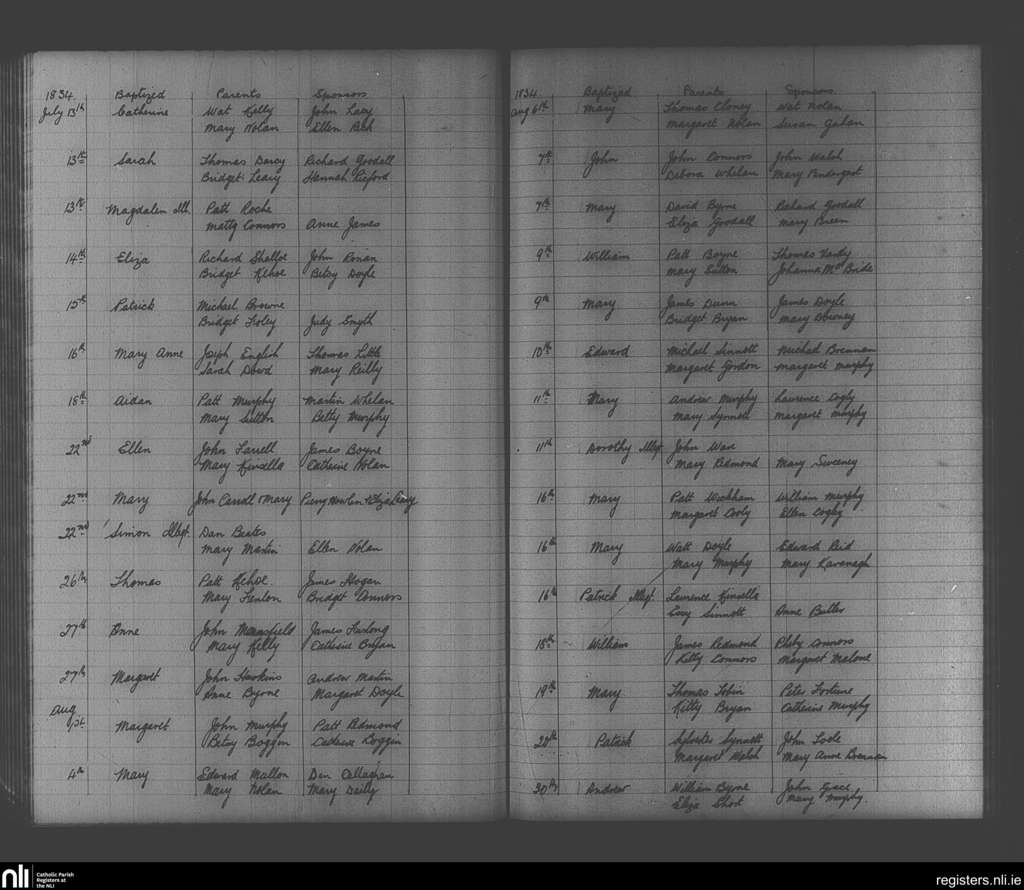 1834 Baptized Parents Sponsors
July 13th Catherine Wat Kelly John Lacy
Mary Nolan Ellen
13th Sarah Thomas Darcy Richard Goodall
Bridget Leary Hannah
13th Magdalen Patt Roche
Matty Connors Anne James
14th Eliza Richard Shalloe John Ronan
Bridget Kehoe Betsy Doyle
15th Patrick Michael Browne
Bridget Foley Judy Smyth
16th Mary Anne Joseph English Thomas Little
Sarah Dowd Mary Reilly
18th Aidan Patt Murphy Martin Whelan
Mary Sutton Betty Murphy
22nd Ellen John Farrell James Boyne
Mary Kinsella Catherine Nolan
22nd Mary John Carroll & Mary Percy Howlin & Eliza Percy
22nd Simon Illegt. Dan Beates
Mary Martin Ellen Nolan
26th Thomas Patt Kehoe James Hogan
Mary Fenlon Bridget Connors
27th Anne John Mansfield James Furlong
Mary Kelly Catherine Bryan
27th Margaret John Hawkins Andrew Martin
Anne Byrne Margaret Doyle
Aug
1st Margaret John Murphy Patt Redmond
Betsy Boggin Catherine Boggin
4th Mary Edward Mallon Dan Callaghan
Mary Nolan Mary Deily
1834 Baptized Parents Sponsors
Aug 6th Mary Thomas Cloney Wat Nolan
Margaret Nolan Susan Gahan
7th John John Connors John Walsh
Debora Whelan Mary Pendergast
7th Mary David Byrne Richard Goodall
Eliza Goodall Mary Breen
9th William Patt Boyne Thomas Vardy
Mary Sutton Johanna McBride
9th Mary James Dunn James Doyle
Bridget Bryan Mary Downey
10th Edward Michael Sinnott Michael Brennan
Margaret Gordon Margaret Murphy
11th Mary Andrew Murphy Laurence Cogly
Mary Synnott Margaret Murphy
11th Dorothy Illegt. John War
Mary Redmond Mary Sweeney
16th Mary Patt Wickham William Murphy
Margaret Cooly Ellen Cogley
16th Mary Watt Doyle Edward Reid
Mary Murphy Mary Kavanagh
16th Patrick Illegt. Laurence Kinsella
Essy Sinnott Anne Butler
18th William James Redmond Phby Connors
Kitty Connors Margaret Malone
19th Mary Thomas Tobin Peter Fortune
Kitty Bryan Catherine Murphy
28th Patrick Sylvester Synnott John Toole
Margaret Walsh Mary Anne Brennan
30th Andrew William Byrne John Grace
Eliza Short Mary Murphy
nli Catholic Parish
Registers at
the NLI
registers.nli.ie